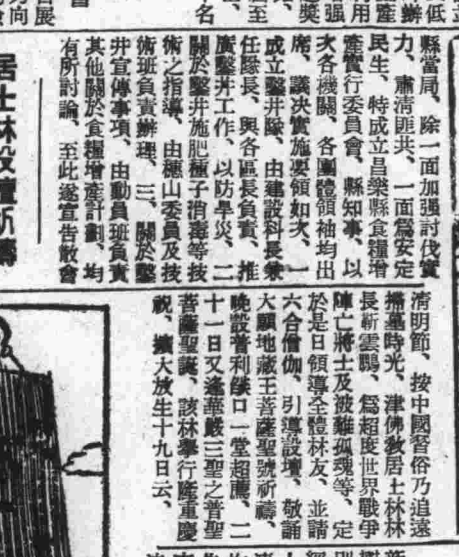 縣當局、除一面加强討伐實
力、肅清匪共、一面爲安定
民生、特成立昌樂縣食糧增
產實行委員會、縣知事、以
次各機關、各團體領袖均出
席、議決實施要領如次、一
成立鑿井隊、由建設科長兼
任隊長、與各區長負責、推
廣鑿井工作、以防旱災、二
關於鑿井施肥種子消毒等技
術之指導、由穗山委員及技
術班負責辦理、三、關於鑿
井宣傳事項、由動員班負責
其他關於食糧增產計劃、均
有所討論、至此遂宣告散會
居士林設壇祈禱
清明節、按中國習俗乃追遠
掃墓時光、津佛敎居士林林
長靳雲鵬、爲超度世界戰爭
陣亡將士及被難孤魂等、定
於是日領導全體林友、並請
六合僧伽、引導設壇、敬誦
大願地藏王菩薩聖號祈禱、
晚設普利燄口一堂超薦、二
十一日又逢華嚴三聖之普聖
菩薩聖誕、該林舉行隆重慶
祝、擴大放生十九日云、